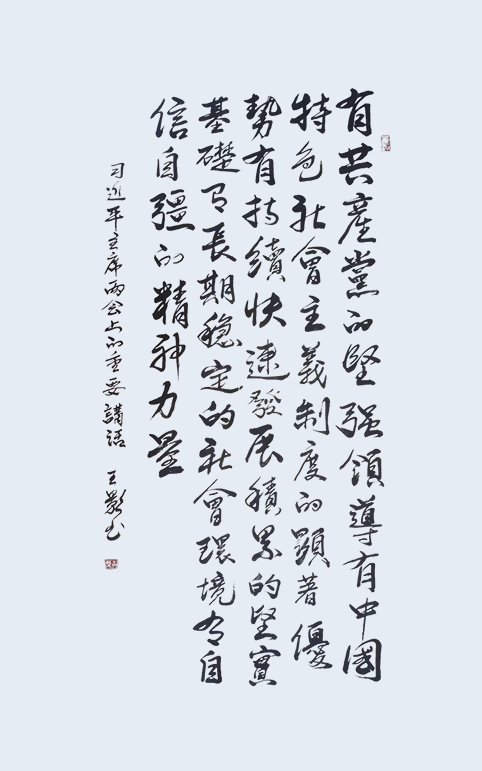 有共產黨的堅强領導有中國
特色社會主義制度的顯著優
勢有持續快速發展積累的堅實
基礎有長期穩定的社會環境有自
信自彊的精神力量
习近平主席兩会上的重要講話 王影书